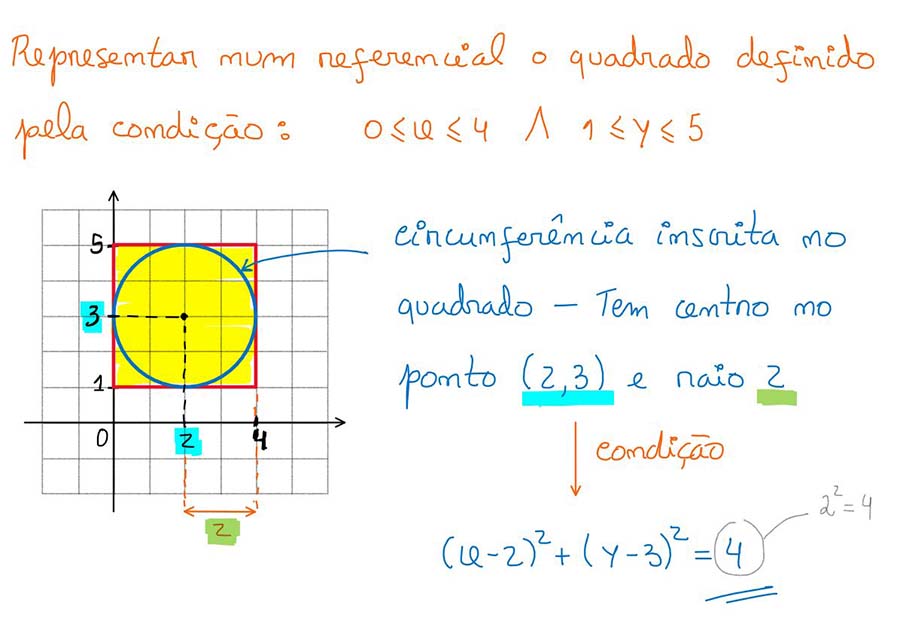 Representar num referencial o quadrado definido
pela condição: 0 ≤ x ≤ 4 ∧ 1 ≤ y ≤ 5
5
3
1
0
2
4
2
circunferência inscrita no
quadrado – Tem centro no
ponto (2,3) e raio 2
condição
2² = 4
(x-2)² + (y-3)² = 4